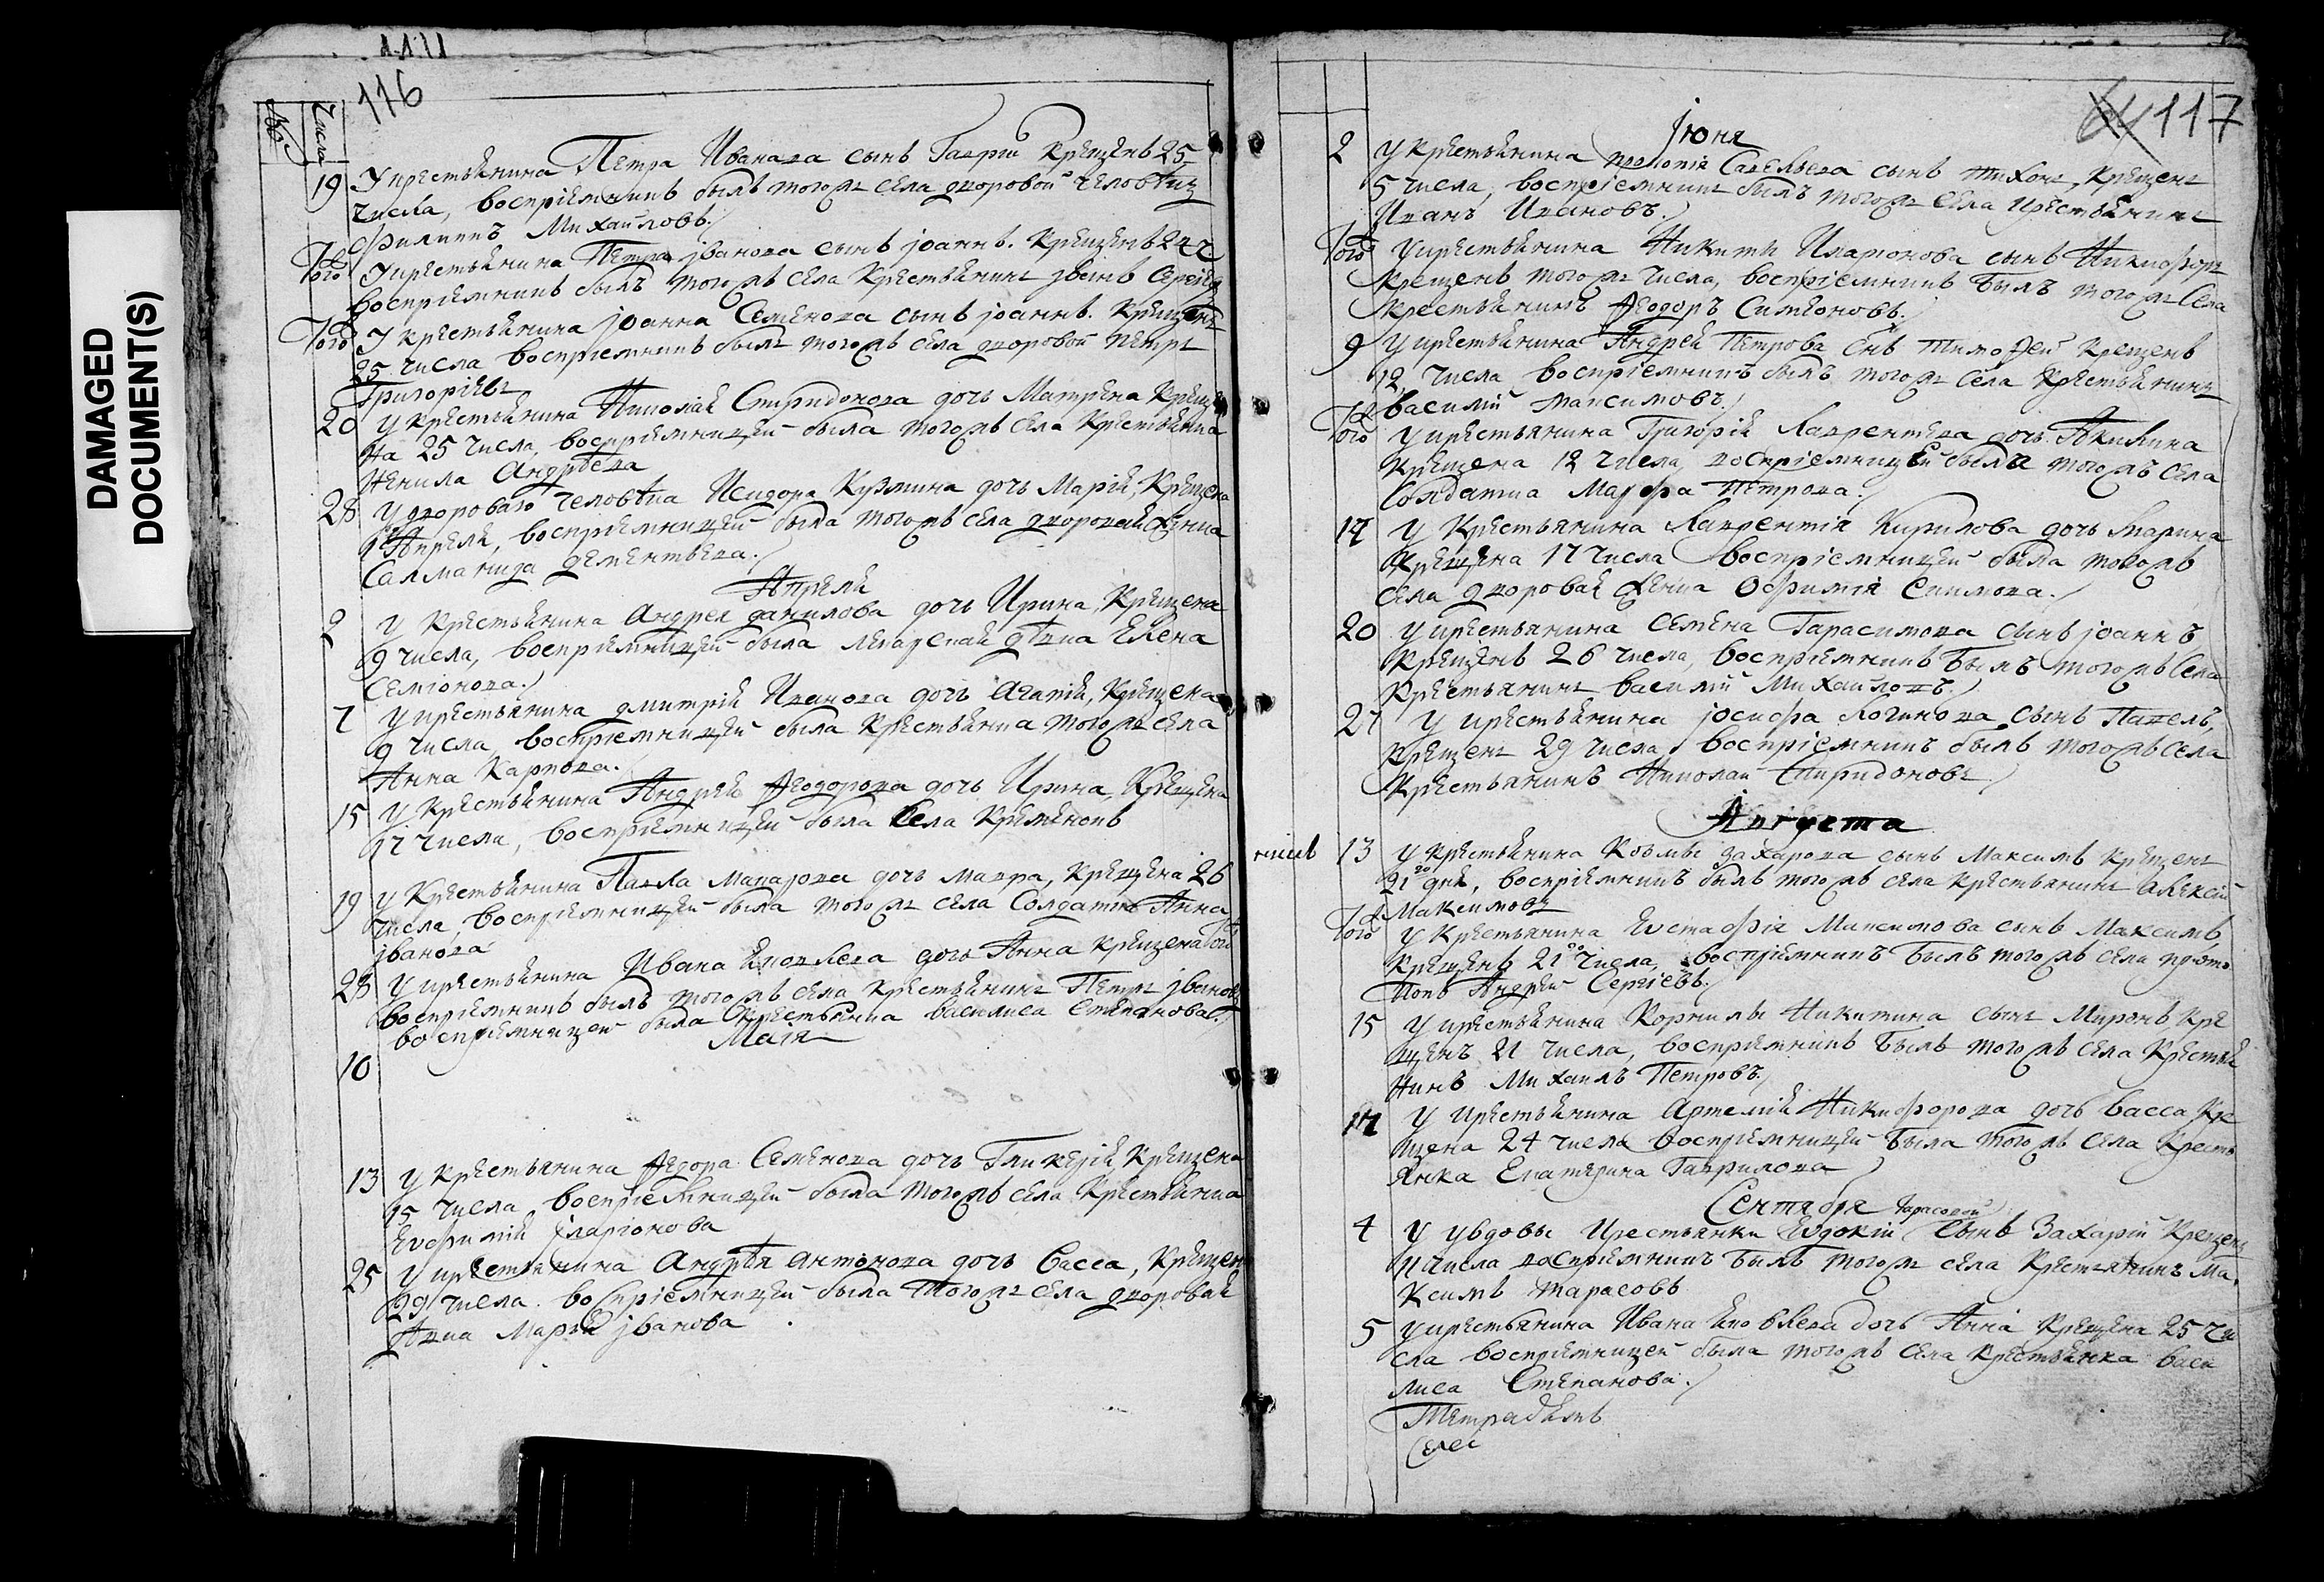 DAMAGED
DOCUMENT(S)
116
Числа
19 У крестьянина Петра Иванова сынъ Гаврїй крещенъ 25
числа, воспрїемникъ былъ тогожъ села дворовой человѣкъ
Филиппъ Михайловъ.
Того У крестьянина Петра Іванова сынъ Іоаннъ. Крещенъ
воспрїемникъ былъ тогожъ села крестьянинъ Іванъ
Того У крестьянина Іоанна Семенова сынъ Іоаннъ. Крещенъ
25 числа воспрїемникъ былъ тогожъ села дворовой Петръ
Григорїевъ
20 У крестьянина Николая Спиридонова дочь Матрена Креще
на 25 числа, воспрїемницей была тогожъ села крестьянка
Ненила Андрѣева
28 У двороваго человѣка Исидора Кузмина дочь Марїя, Крещена
Апреля, воспрїемницей была тогожъ села дворовая
Саломанида Дементьева.
Апреля
2 У крестьянина Андрея Данилова дочь Ирина, Крещена
9 числа, воспрїемницей была Елена
Семїонова.
7 У крестьянина Дмитрїя Иванова дочь Агапїя, Крещена
9 числа, воспрїемницей была крестьянка тогожъ села
Анна Карпова.
15 У крестьянина Андрея Ѳеодорова дочь Ирина, Крещена
17 числа, воспрїемницей была села
19 У крестьянина Павла Макарова дочь Мавра, Крещена 26
числа, воспрїемницей была тогожъ села Солдатка Анна
Іванова
28 У крестьянина Ивана Яковлева дочь Анна крещена
воспрїемникъ былъ тогожъ села крестьянинъ Петръ Івановъ
воспрїемницею была крестьянка Василиса Степанова.
Маїя
10
13 У крестьянина Ѳедора Семенова дочь Гликерїя, Крещена
15 числа, воспрїемницей была тогожъ села крестьянка
Евфимїя Іларїонова
25 У крестьянина Андрѣя Антонова дочь Васса, Крещен
29 числа. воспрїемницей была тогожъ села дворовая
Марѳа Іванова
117
Іюня
2 У крестьянина Савельева сынъ Тихонъ, Крещенъ
5 числа, воспрїемникъ былъ тогожъ села крестьянинъ
Иванъ Ивановъ.
Того У крестьянина Никиты Иларїонова сынъ Никифоръ
Крещенъ тогожъ числа, воспрїемникъ былъ тогожъ села
крестьянинъ Ѳеодоръ Симїоновъ.
9 У крестьянина Андрея Петрова снъ Тимоѳей Крещенъ
12 числа воспрїемникъ былъ тогожъ села крестьянинъ
Василїй Максимовъ.
Того У крестьянина Григорїя Лаврентьева дочь Акилина
Крещена 12 числа, воспрїемницей была тогожъ села
Солдатка Марфа Петрова.
17 У крестьянина Лаврентїя Кирилова дочь Марина
Крещена 17 числа воспрїемницей была тогожъ
села дворовая женка Офимїя
20 У крестьянина Семена Гарасимова сынъ Іоаннъ
Крещенъ 26 числа, воспрїемникъ былъ тогожъ села
крестьянинъ Василїй Михайловъ.
27 У крестьянина Іосифа Логинова сынъ Павелъ,
Крещенъ 29 числа, воспрїемникъ былъ тогожъ села
Крестьянинъ Николай Спиридоновъ.
Августа
13 У крестьянина Козьмы Захарова сынъ Максимъ Крещенъ
21го дня, воспрїемникъ былъ тогожъ села крестьянинъ Алексѣй
Максимовъ
Того У крестьянина Евстафїя Максимова сынъ Максимъ,
Крещенъ 21го числа, воспрїемникъ былъ тогожъ села прото
попъ Андрей Сергїевъ.
15 У крестьянина Корнилы Никитина сынъ Миронъ Кре
щенъ 21 числа, воспрїемникъ былъ тогожъ села Крестья
нинъ Михаилъ Петровъ.
17 У крестьянина Артемїя Никифорова дочь Васса Кре
щена 24 числа воспрїемницей была тогожъ села Кресть
янка Екатерина Гаврилова
Сентября
Тарасовой
4 У вдовы крестьянки Евдокїи сынъ Захарїй Крещенъ
11 числа воспрїемникъ былъ тогожъ села крестьянинъ Ма
ксимъ Тарасовъ
5 У крестьянина Ивана Яковлева дочь Анна Крещена 25 чи
сла воспрїемницей была тогожъ села крестьянка Васи
лиса Степанова.